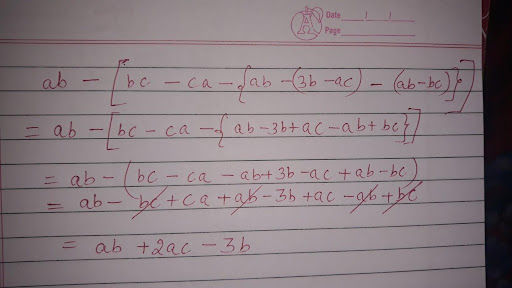 Date / /
Page
ab - [bc - ca - {ab - (3b - ac) - (ab - bc)}]
= ab - [bc - ca - {ab - 3b + ac - ab + bc}]
= ab - (bc - ca - ab + 3b - ac + ab - bc)
= ab - bc + ca + ab - 3b + ac - ab + bc
= ab + 2ac - 3b